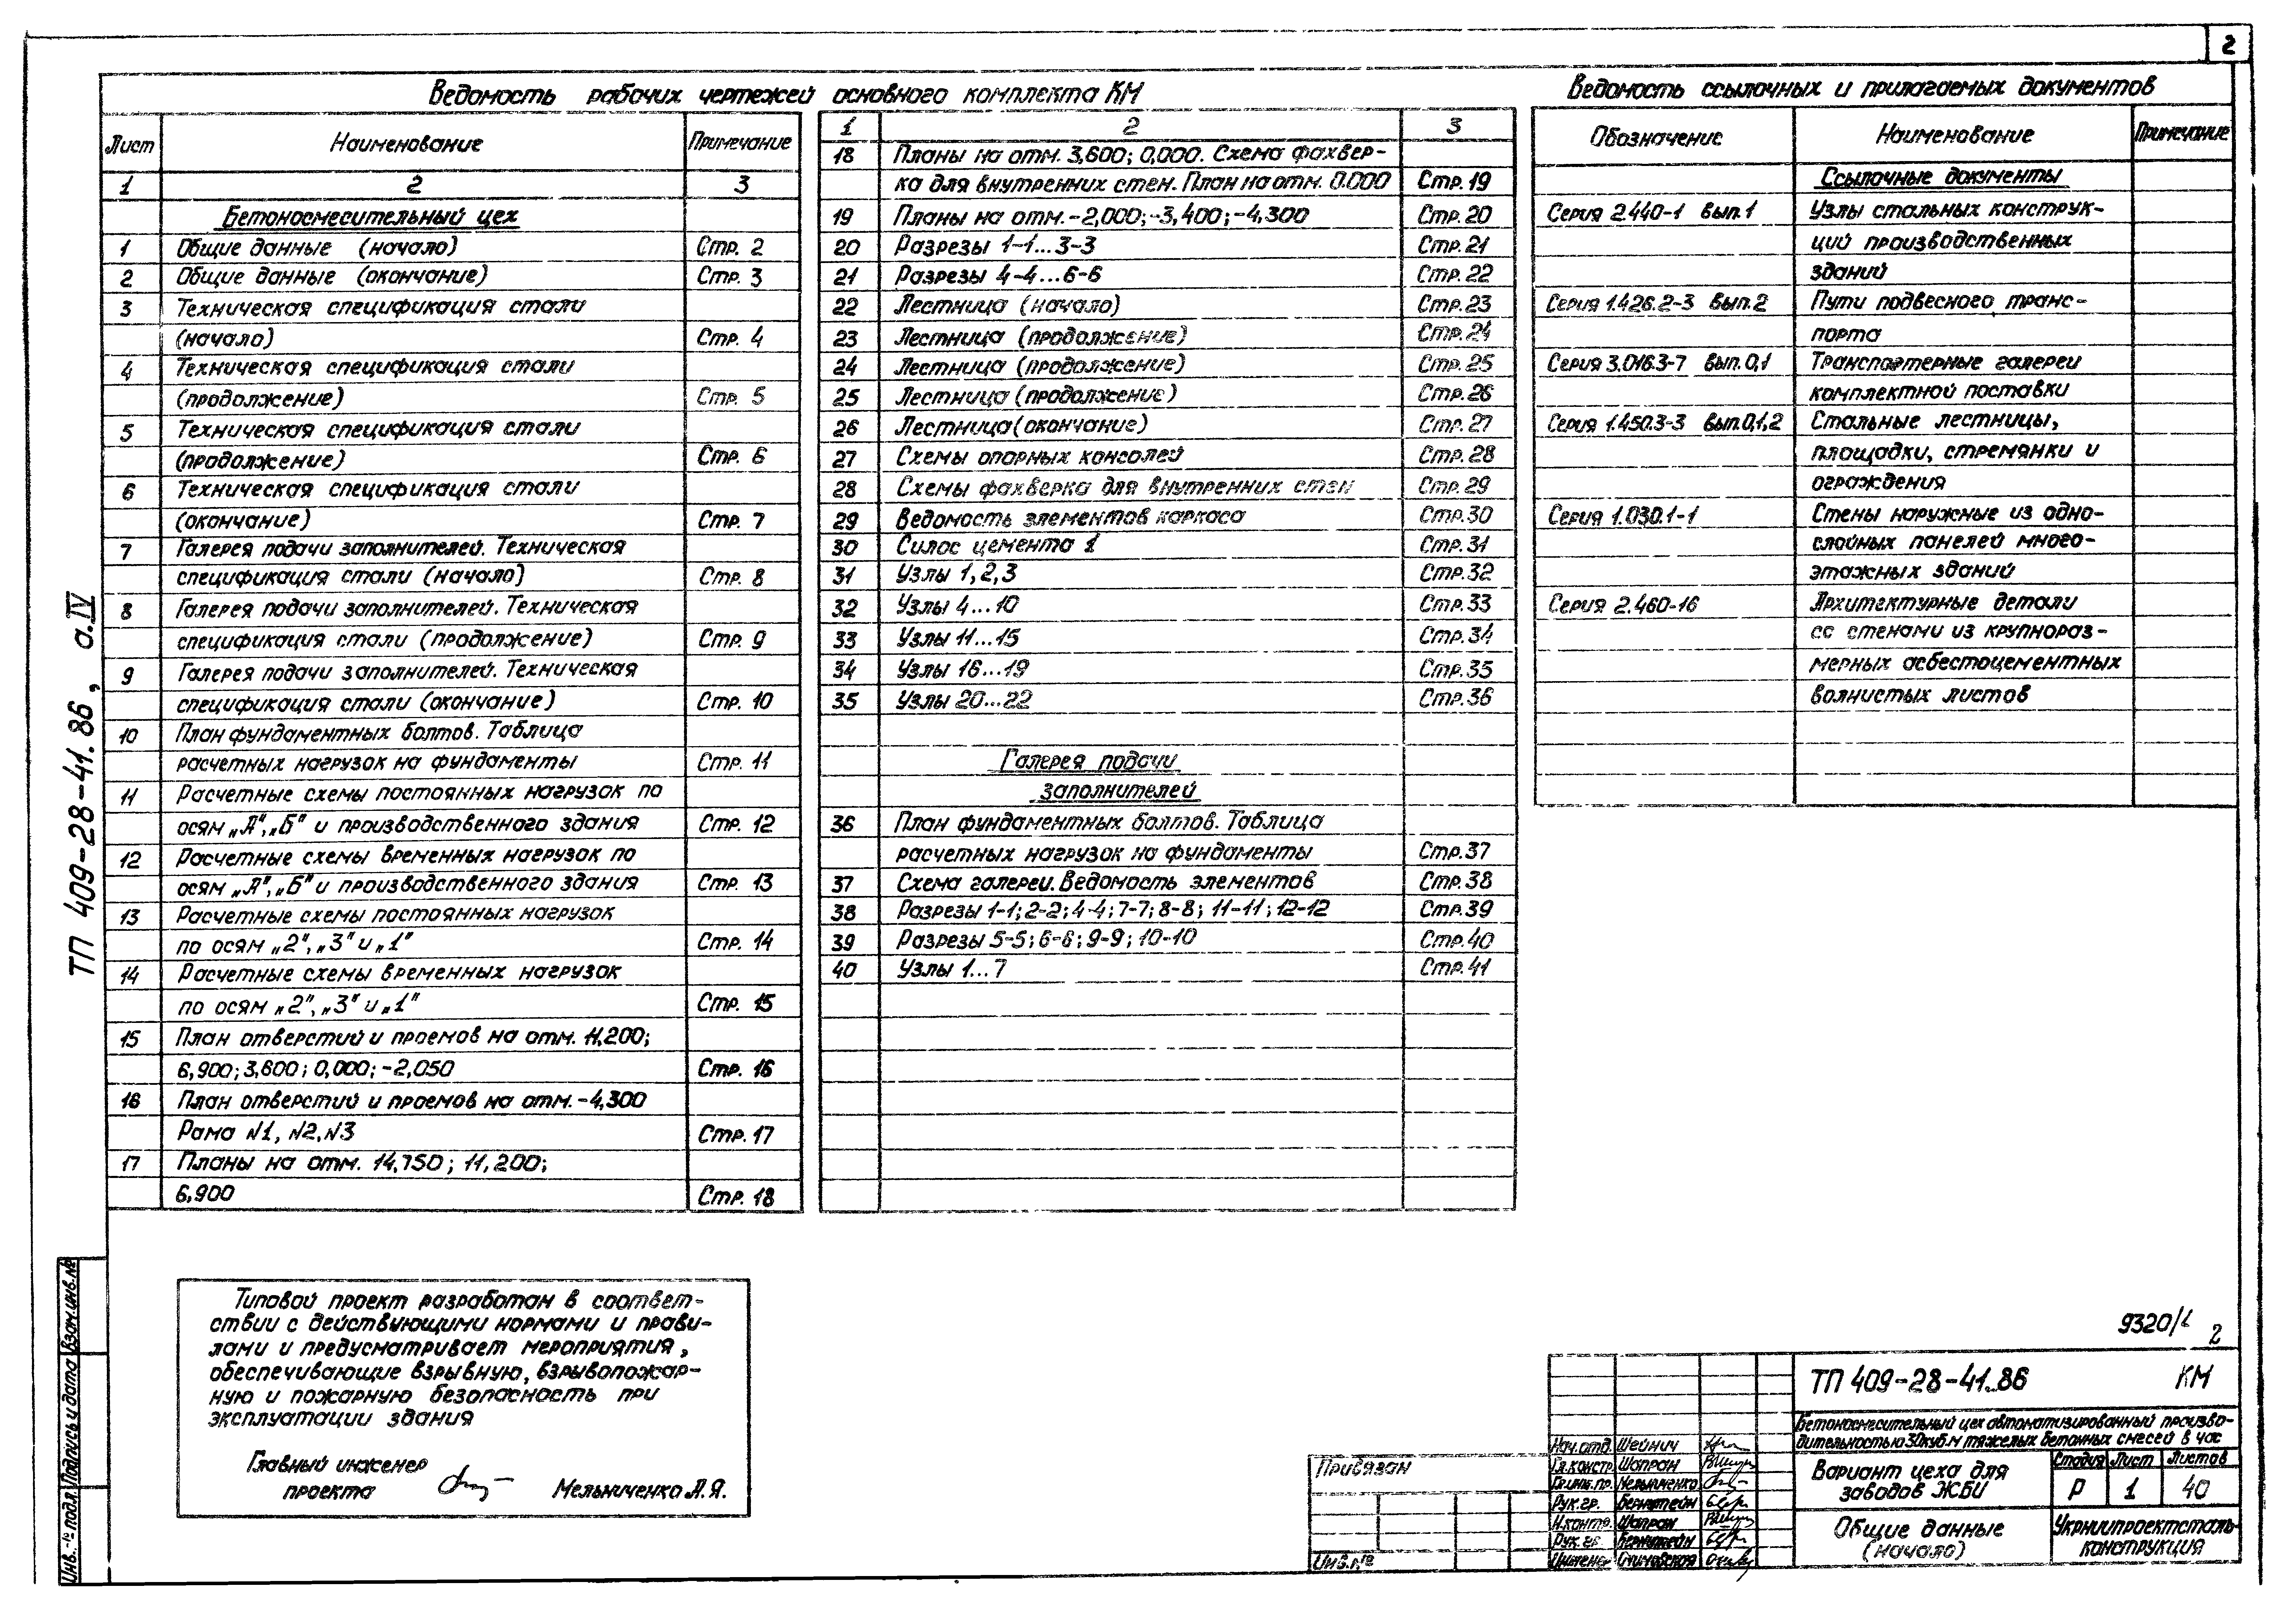 2
Ведомость рабочих чертежей основного комплекта КМ
Лист Наименование Примечание
1 2 3
Бетоносмесительный цех
1 Общие данные (начало) Стр. 2
2 Общие данные (окончание) Стр. 3
3 Техническая спецификация стали
(начало) Стр. 4
4 Техническая спецификация стали
(продолжение) Стр. 5
5 Техническая спецификация стали
(продолжение) Стр. 6
6 Техническая спецификация стали
(окончание) Стр. 7
7 Галерея подачи заполнителей. Техническая
спецификация стали (начало) Стр. 8
8 Галерея подачи заполнителей. Техническая
спецификация стали (продолжение) Стр. 9
9 Галерея подачи заполнителей. Техническая
спецификация стали (окончание) Стр. 10
10 План фундаментных болтов. Таблица
расчетных нагрузок на фундаменты Стр. 11
11 Расчетные схемы постоянных нагрузок по
осям „А", „Б" и производственного здания Стр. 12
12 Расчетные схемы временных нагрузок по
осям „А", „Б" и производственного здания Стр. 13
13 Расчетные схемы постоянных нагрузок
по осям „2", „3" и „1" Стр. 14
14 Расчетные схемы временных нагрузок
по осям „2", „3" и „1" Стр. 15
15 План отверстий и проемов на отм. 11,200;
6,900; 3,600; 0,000; -2,050 Стр. 16
16 План отверстий и проемов на отм. -4,300
Рама N1, N2, N3 Стр. 17
17 Планы на отм. 14,750; 11,200;
6,900 Стр. 18
1 2 3
18 Планы на отм. 3,600; 0,000. Схема фахвер-
ка для внутренних стен. План на отм. 0.000 Стр. 19
19 Планы на отм. -2,000; -3,400; -4,300 Стр. 20
20 Разрезы 1-1...3-3 Стр. 21
21 Разрезы 4-4...6-6 Стр. 22
22 Лестница (начало) Стр. 23
23 Лестница (продолжение) Стр. 24
24 Лестница (продолжение) Стр. 25
25 Лестница (продолжение) Стр. 26
26 Лестница (окончание) Стр. 27
27 Схемы опорных консолей Стр. 28
28 Схемы фахверка для внутренних стен Стр. 29
29 Ведомость элементов каркаса Стр. 30
30 Силос цемента 1 Стр. 31
31 Узлы 1, 2, 3 Стр. 32
32 Узлы 4...10 Стр. 33
33 Узлы 11...15 Стр. 34
34 Узлы 16...19 Стр. 35
35 Узлы 20...22 Стр. 36
Галерея подачи
заполнителей
36 План фундаментных болтов. Таблица
расчетных нагрузок на фундаменты Стр. 37
37 Схема галереи. Ведомость элементов Стр. 38
38 Разрезы 1-1; 2-2; 4-4; 7-7; 8-8; 11-11; 12-12 Стр. 39
39 Разрезы 5-5; 6-6; 9-9; 10-10 Стр. 40
40 Узлы 1...7 Стр. 41
Ведомость ссылочных и прилагаемых документов
Обозначение Наименование Примечание
Ссылочные документы
Серия 2.440-1 вып. 1 Узлы стальных конструк-
ций производственных
зданий
Серия 1.426.2-3 вып. 2 Пути подвесного транс-
порта
Серия 3.016.3-7 вып. 0,1 Транспортерные галереи
комплектной поставки
Серия 1.450.3-3 вып. 0,1,2 Стальные лестницы,
площадки, стремянки и
ограждения
Серия 1.030.1-1 Стены наружные из одно-
слойных панелей много-
этажных зданий
Серия 2.460-16 Архитектурные детали
со стенами из крупнораз-
мерных асбестоцементных
волнистых листов
ТП 409-28-41.86, а.IV
Взам.инв.№
Подпись и дата
Инв. № подл.
Типовой проект разработан в соответ-
ствии с действующими нормами и прави-
лами и предусматривает мероприятия,
обеспечивающие взрывную, взрывопожар-
ную и пожарную безопасность при
эксплуатации здания
Главный инженер
проекта Мельниченко А.Я.
9320/ 2
Привязан
Инв.№
Нач.отд. Шейнич
Гл.констр. Шапран
Гл.инж.пр. Мельниченко
Рук.гр. Бернштейн
Н.контр. Шапран
Рук.гр. Бернштейн
Инжене
ТП 409-28-41.86 КМ
Бетоносмесительный цех автоматизированный произво-
дительностью 30куб.м тяжелых бетонных смесей в час
Вариант цеха для
заводов ЖБИ
Стадия Лист Листов
Р 1 40
Общие данные
(начало)
Укрниипроектсталь-
конструкция